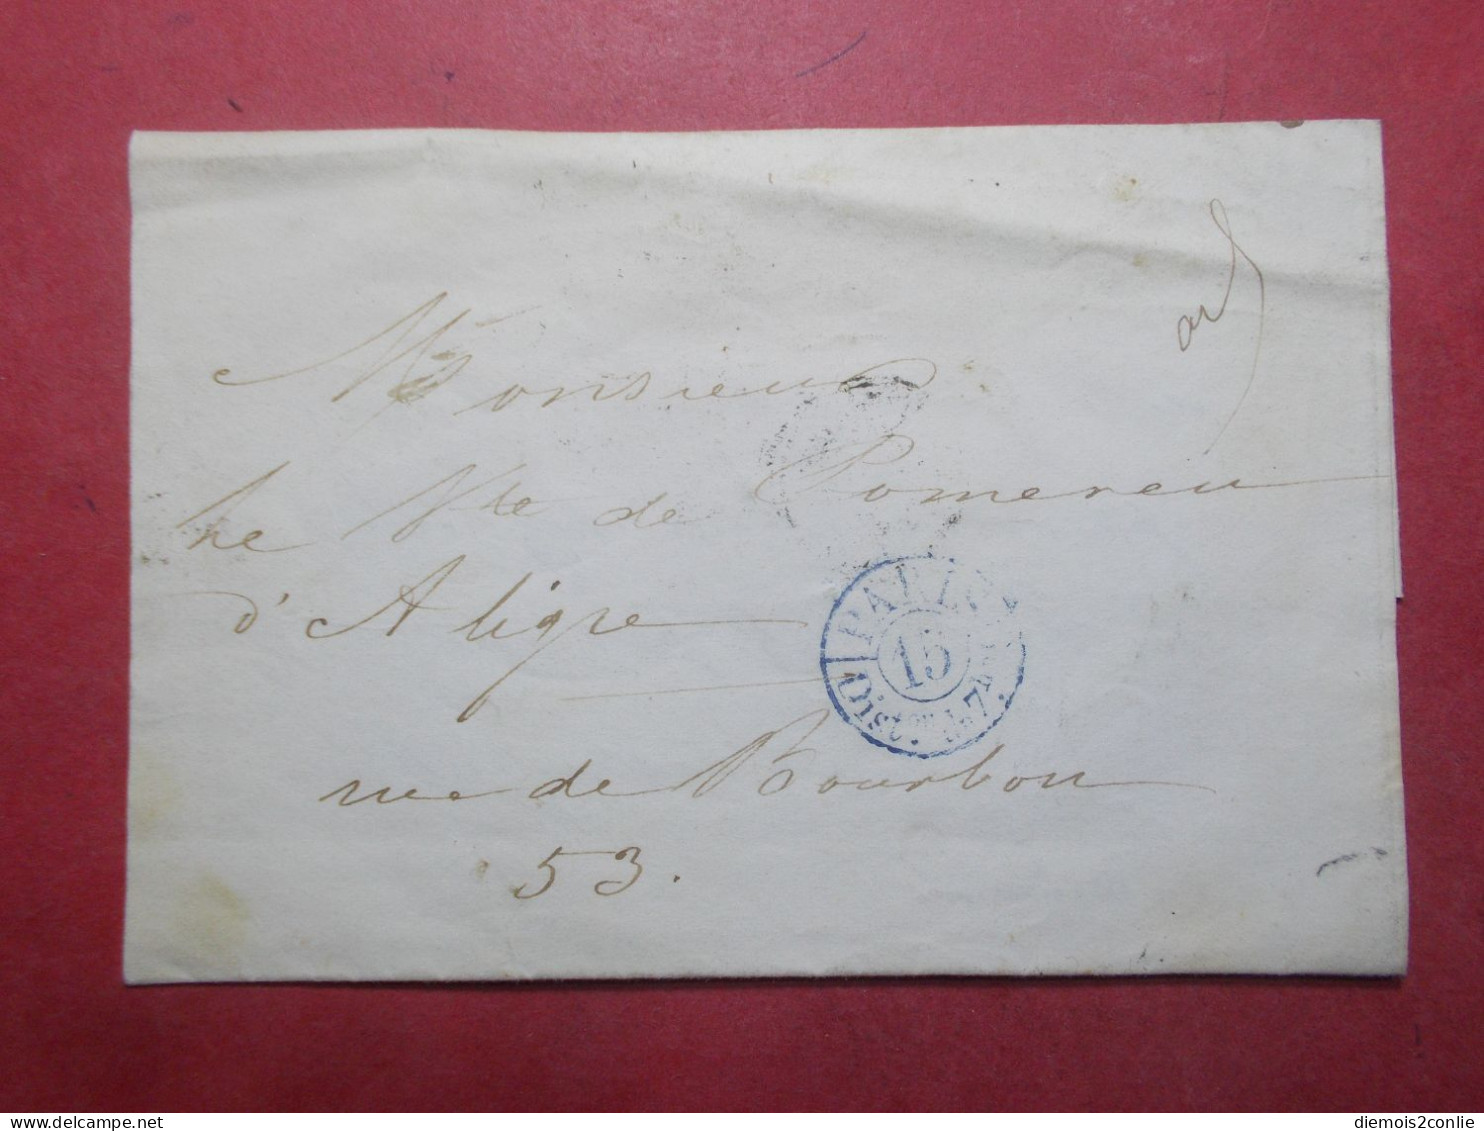 Monsieur
Le Vte de Pomereu
d'Aligre
rue de Bourbon
53.
PARIS
15
Dist
de 7
delcampe.net
diemois2conlie